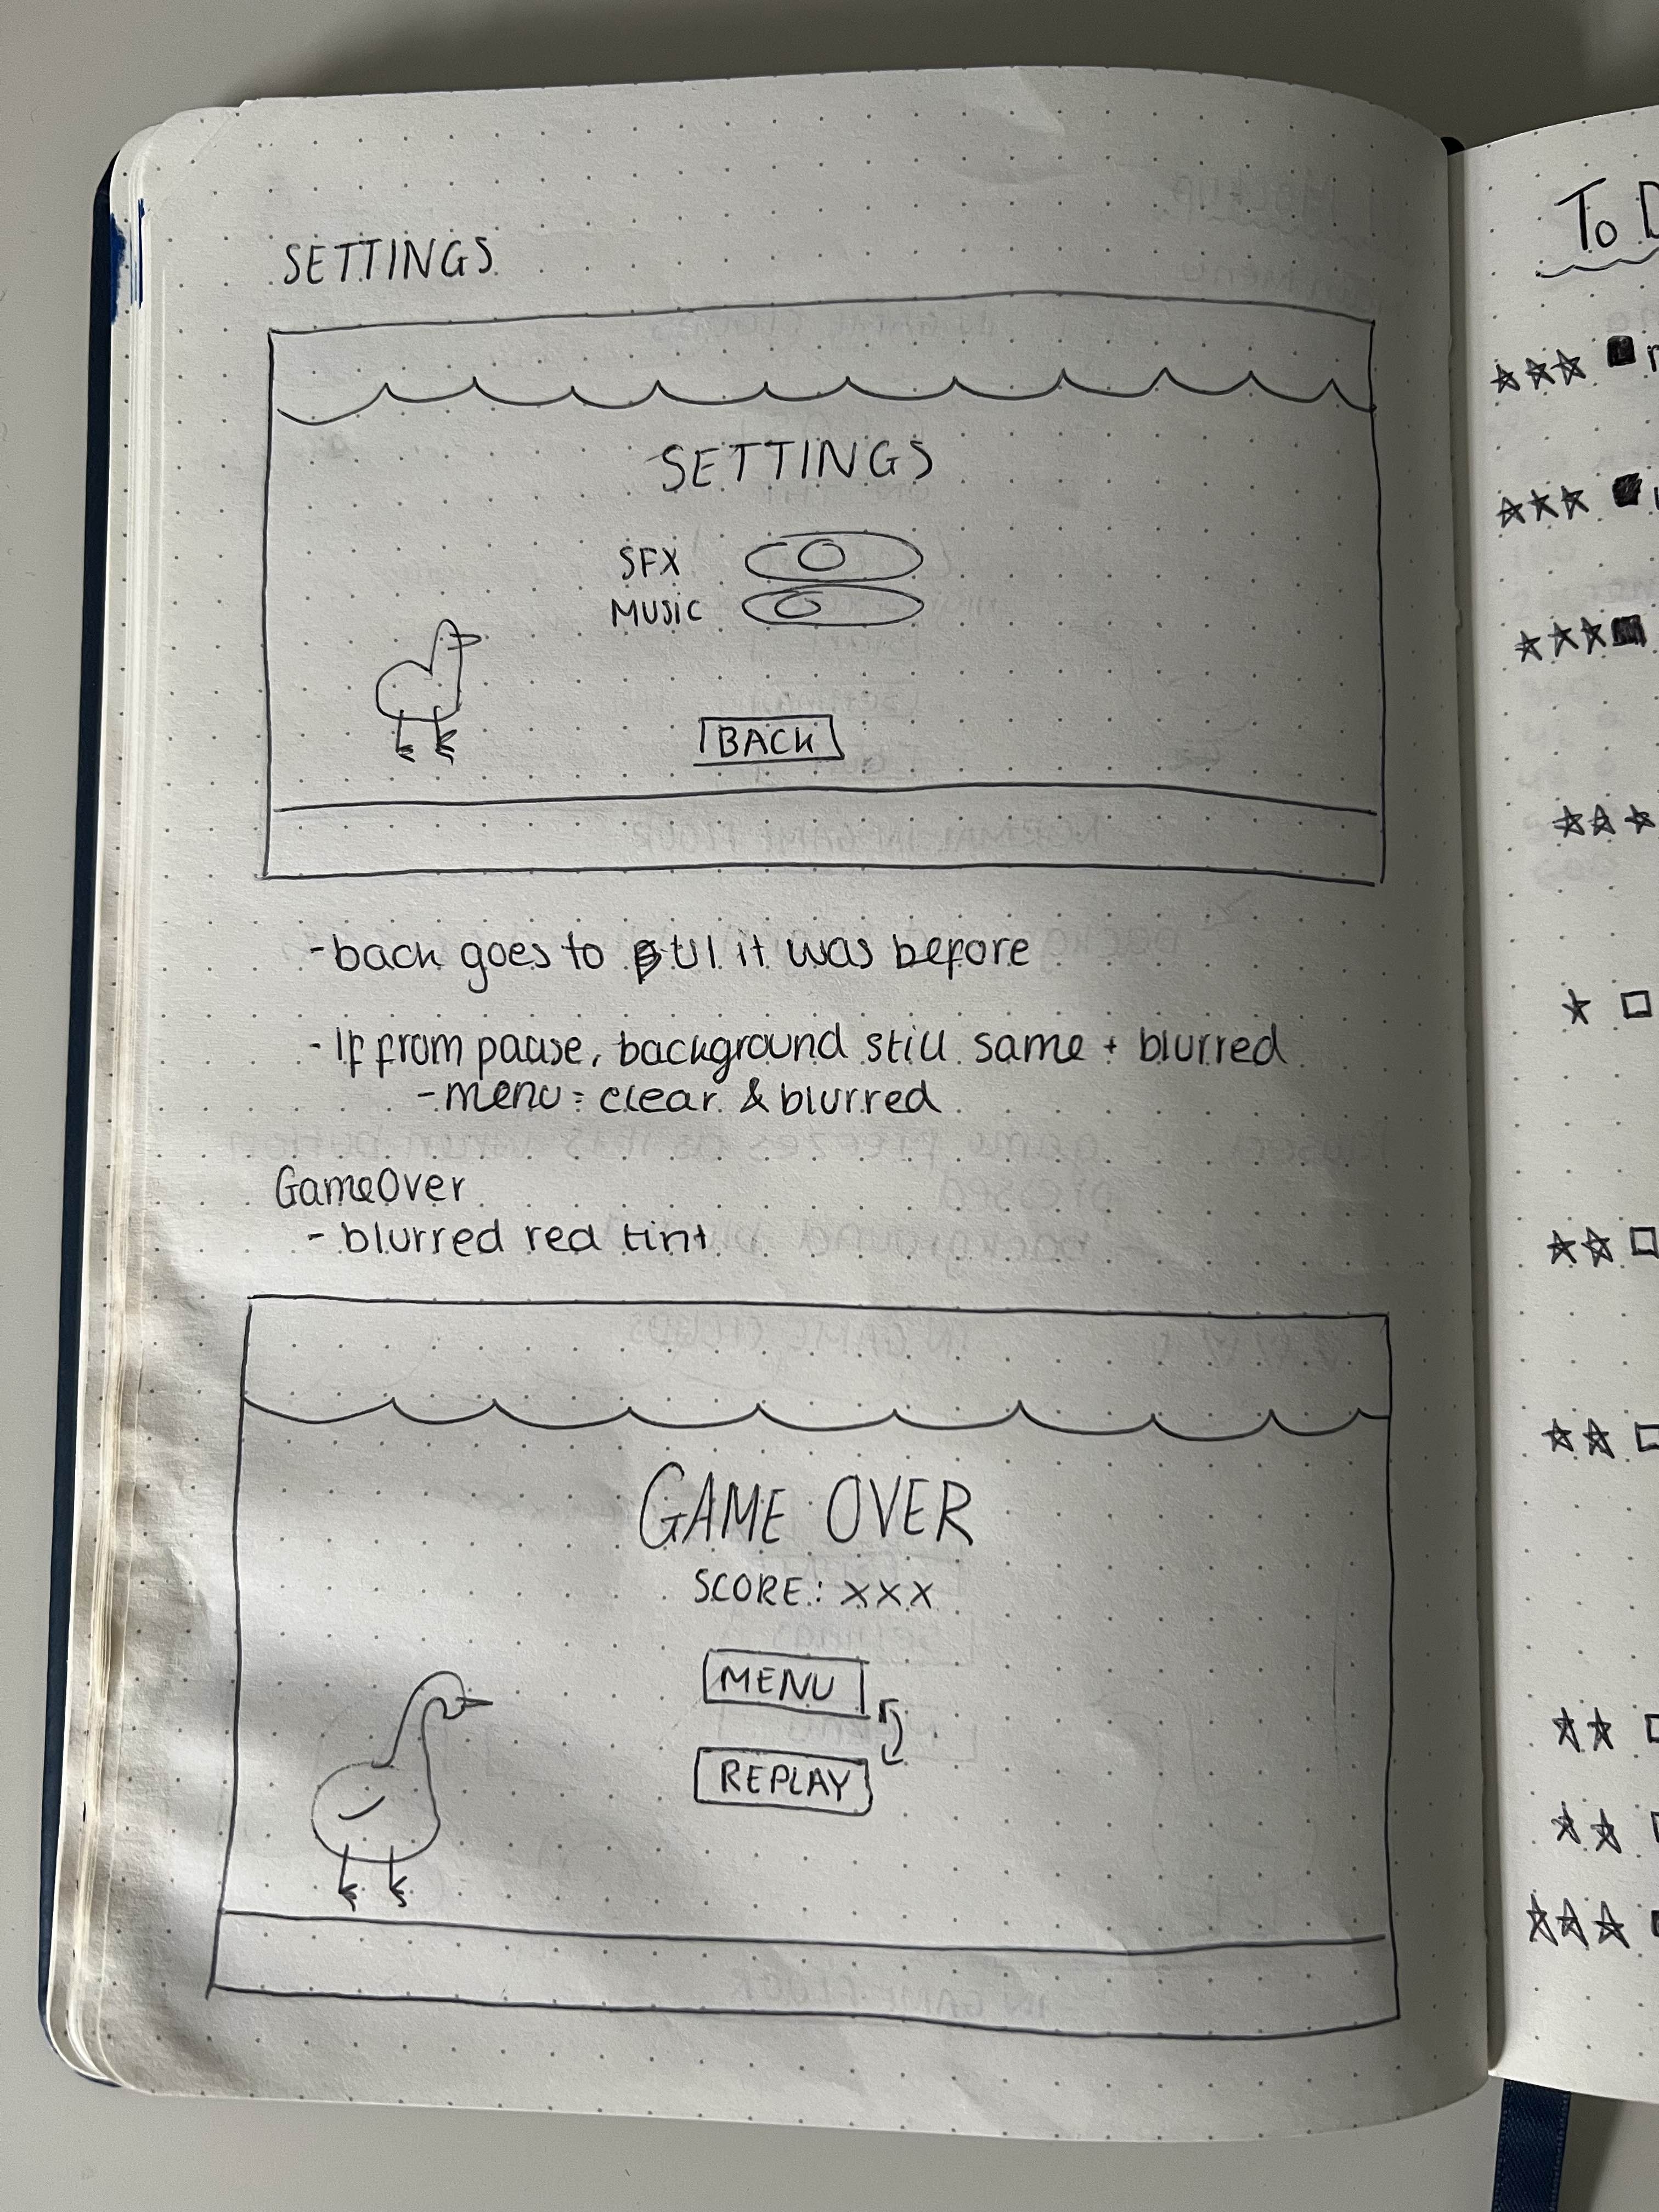 SETTINGS
SETTINGS
SFX
MUSIC
BACK
- back goes to it was before
- If from pause, background still same + blurred
- menu = clear & blurred
GameOver
- blurred red tint
GAME OVER
SCORE: XXX
MENU
REPLAY
To D